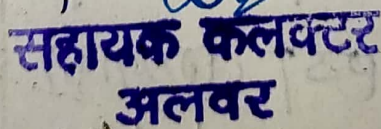 सहायक कलक्टर
अलवर